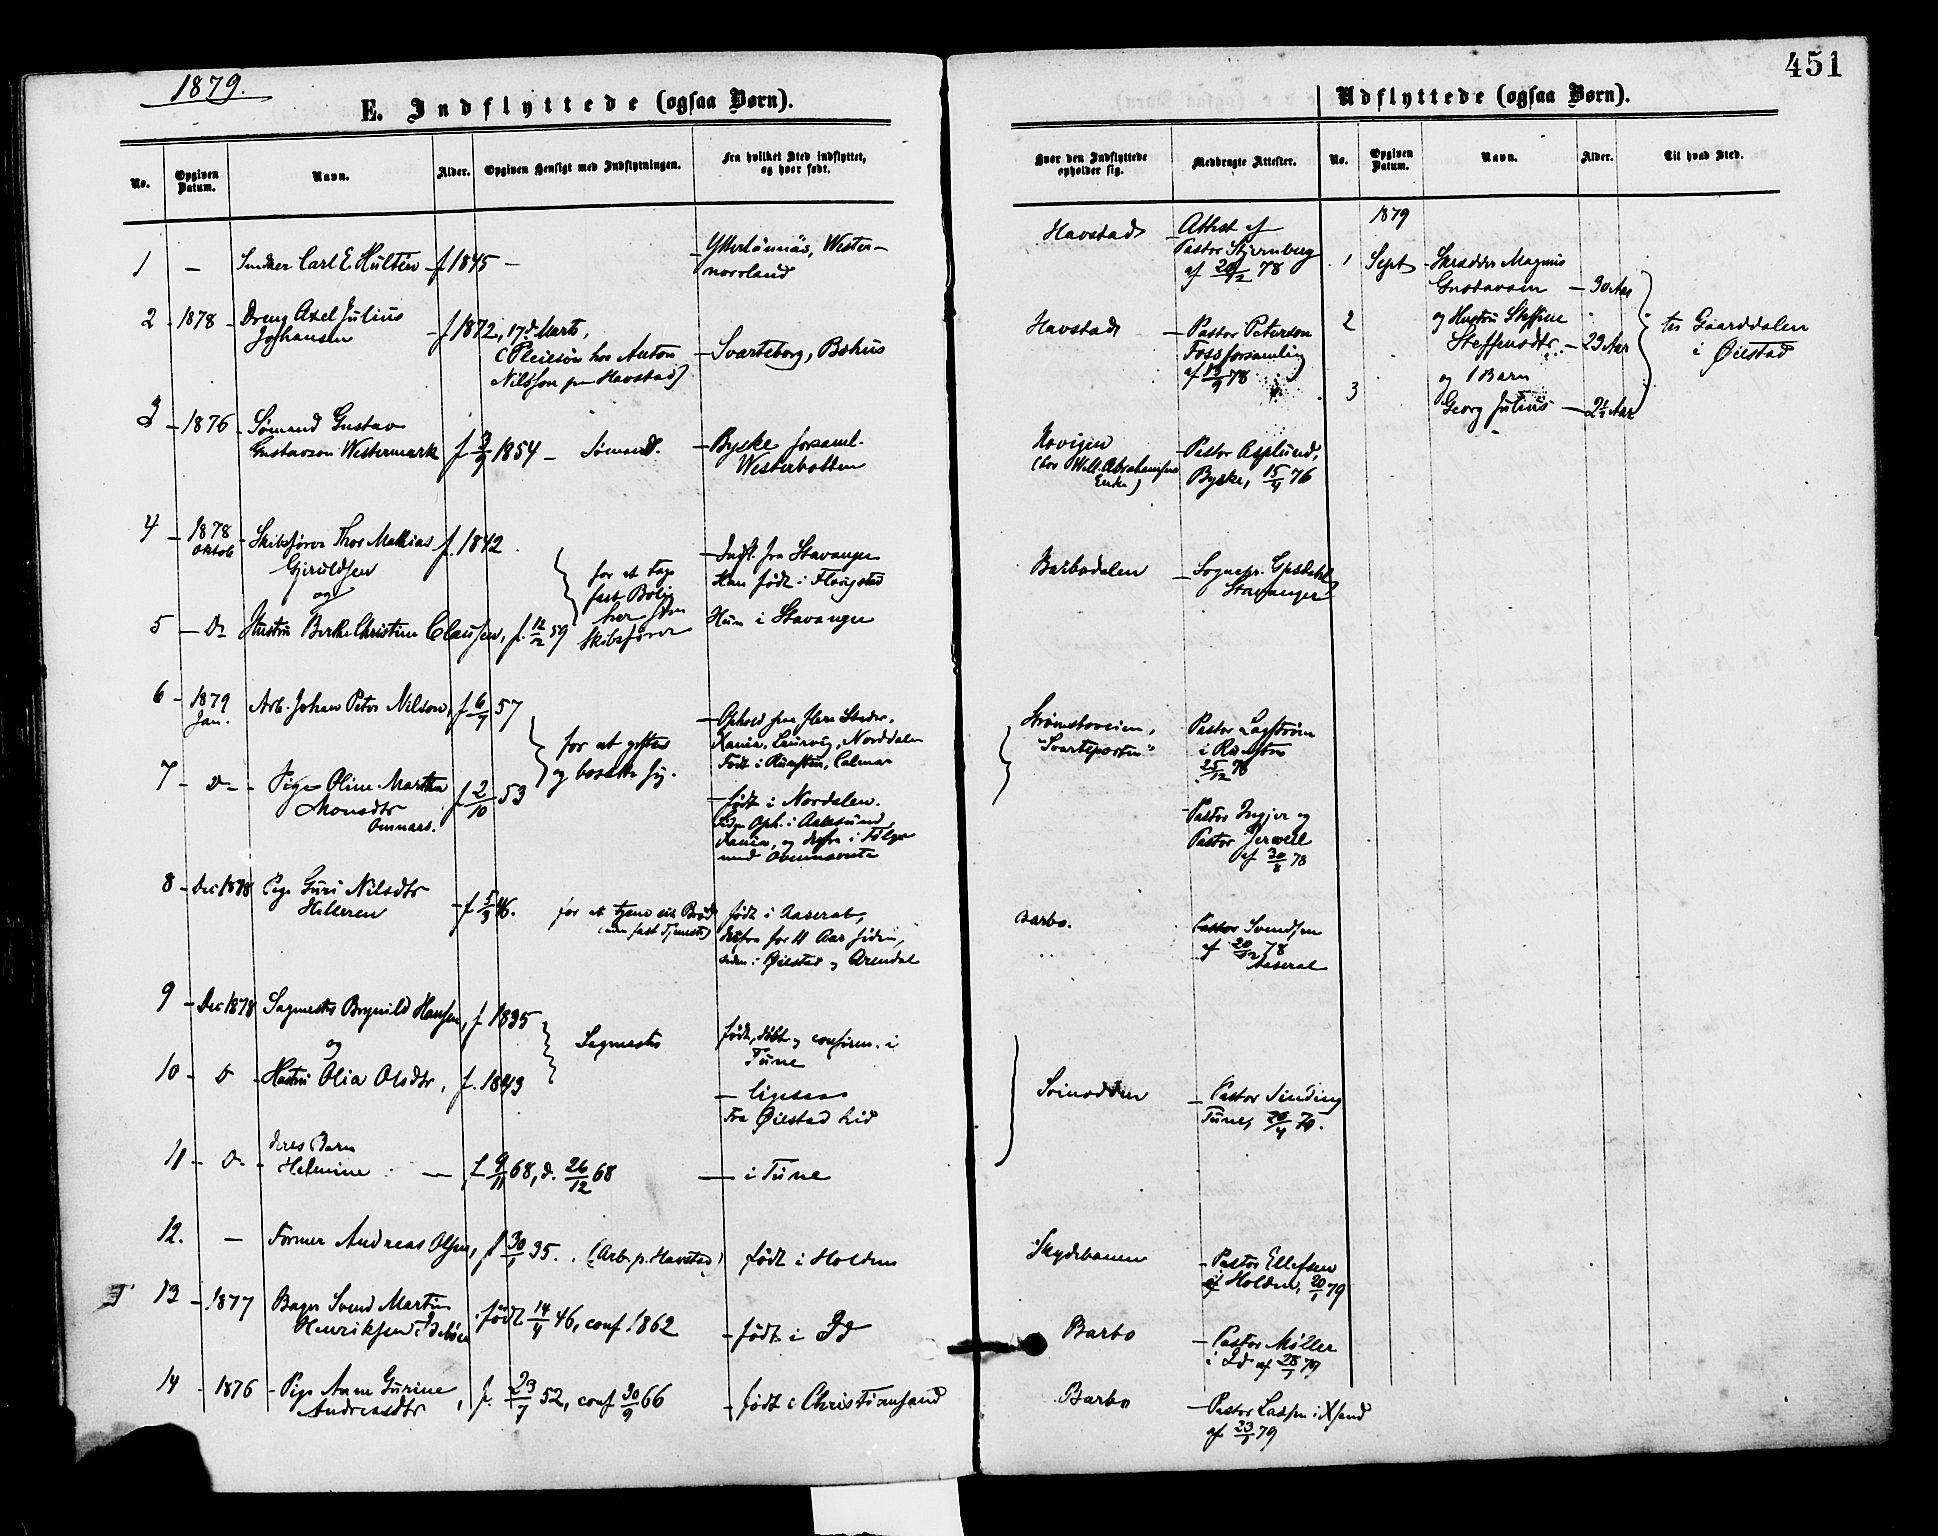 1879.
451
E. Indflyttede (ogsaa Børn).
Udflyttede (ogsaa Børn).
No.
Opgiven Datum.
Navn.
Alder.
Opgiven Hensigt med Indflytningen.
Fra hvilket Sted indflyttet, og hvor født.
Hvor den Indflyttede opholder sig.
Medbragte Attester.
No.
Opgiven Datum.
Navn.
Alder.
Til hvad Sted.
1 – Snedker Carl E. Hultén f 1845 –
Ytterlännäs, Wester-
norrland
Havstad
Attest af
Pastor Stjernberg
af 20/12 78
2 - 1878 - Dreng Axel Julius
Johansen
f 1872, 17d. Marts,
(Pleiesøn hos Anton
Nilsson paa Havstad)
Svarteborg, Bohus
Havstad
Pastor Peterson
Foss forsamling
af 13/9 78
3 - 1876 - Sømand Gustav
Gustavson Westermark f 3/9 1854 – Sømand.
Byske forsaml.
Westerbotten
Kovigen
(hos Will. Abrahamsens
Enke)
Pastor Asplund,
Byske, 15/4 76
4 - 1878
Oktob
Skibsfører Thor Mathias
Gjeruldsen
og
f. 1842
for at tage
fast Bolig
her som
Skibsfører
Indf. fra Stavanger
Han født i Flosta
Barbodalen
Sognepr.
Stavanger
5 – Do Hustru Christine Clausen, f. 12/12 59
Hun i Stavanger
6 - 1879
Jan.
Arb. Johan Peter Nilson, f 6/7 57
for at giftes
og bosætte sig.
Ophold paa flere Steder,
Xania, Laurvig, Norddalen
Født i Runsten, Calmar
Strømsboveien,
"Svarteporten"
Pastor Lagström
i Runsten
25/12 78
7 - Do - Pige Oline Martha
Monsdtr
f 2/10 53
født i Nordalen.
siden Oph. i Aalesund,
Xania, og derfra i Følge
med Ovennævnte
Pastor Ingier og
Pastor Jervell
af 30/8 78
8 - Dec 1878 Pige Guri Nilsdtr
Helleren
f 5/3 46.
for at tjene sit Brød
(uden fast Tjeneste)
født i Aaseral,
derfra for 11 Aar siden,
siden i Øiestad og Arendal
Barbo.
Pastor Svendsen
af 20/12 78
Aaseral
9 - Dec 1878 Sagmester Brynild Hansen, f. 1835
og
Sagmester
født, døbt og confirm. i
Tune
10 - D - Hustru Olia Olsdtr, f. 1843
– ligesaa
Fra Øiestad hid
Soinodden
Pastor Sinding
Tune, 20/4 70.
11 - Do - deres Barn
Helmine – f 9/11 68, d. 26/12 68
– i Tune
12. – Former Andreas Olsen, f 30/1 35. (Arb. p. Havstad)
født i Holden
Skydebanen
Pastor Ellefsen
i Holden, 20/1 79
13 - 1877 Bager Svend Martin
Henriksen
født 14/4 46, conf. 1862
- født i Id
Barbo
Pastor Møller
i Id af 28/1 79
14 - 1876 - Pige Anne Gurine
Andreasdtr, f. 23/7 52, conf 30/9 66
- født i Christiansand
Barbo
Pastor Lassen i Xsand
af 23/1 79
1879
1 Sept Skrædder Magnus
Gustavsen – 30 Aar
2 og Hustru Steffine
Steffensdtr. – 29 Aar
3 og 1 Barn
Georg Julius – 2½ Aar
til Gaarddalen
i Øiestad